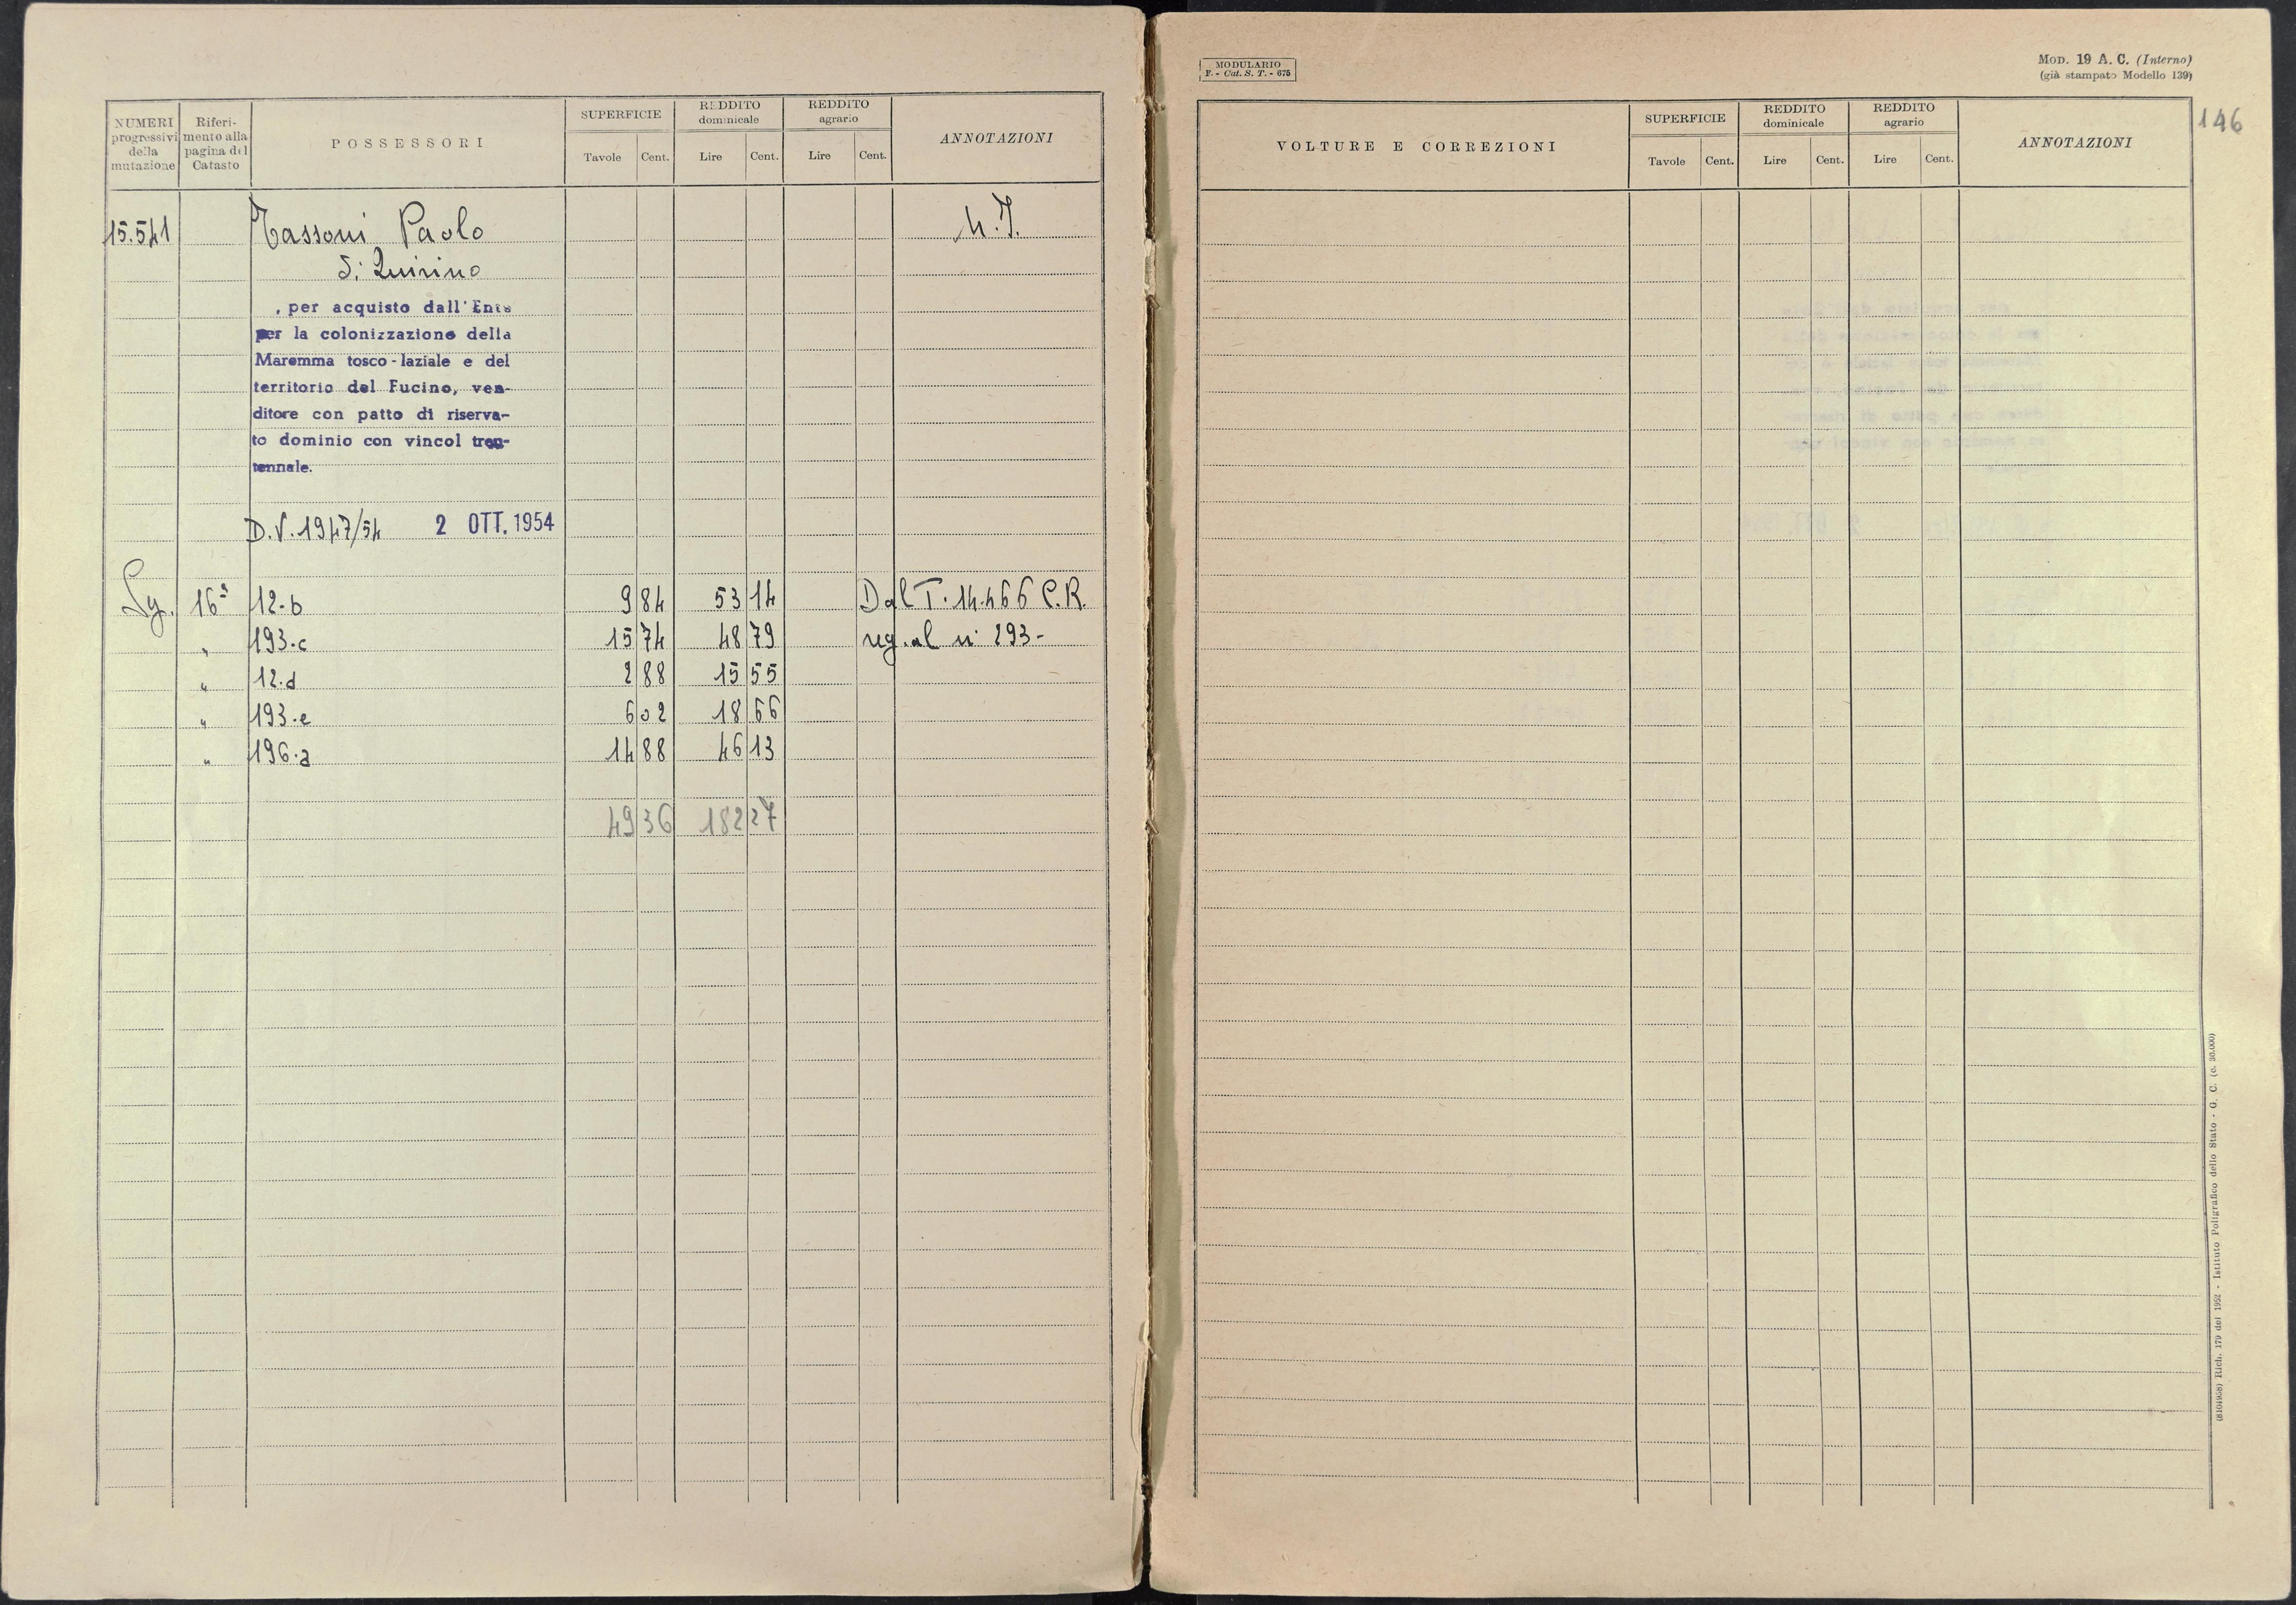 NUMERI progressivi della mutazione
Riferimento alla pagina del Catasto
POSSESSORI
SUPERFICIE
Tavole Cent.
REDDITO dominicale
Lire Cent.
REDDITO agrario
Lire Cent.
ANNOTAZIONI
15.541 Tassoni Paolo
di Quirino
, per acquisto dall'Ente
per la colonizzazione della
Maremma tosco-laziale e del
territorio del Fucino, ven-
ditore con patto di riserva-
to dominio con vincol tren-
tennale.
D.V. 1947/54 2 OTT. 1954
16ª 12-b 9 84 53 14 Dal T. 14.466 C.R.
" 193-c 15 74 48 79 reg. al n° 293-
" 12-d 2 88 15 55
" 193-e 6 02 18 66
" 196-a 14 88 46 13
49 36 182 27
MODULARIO
F. - Cat. S. T. - 675
MOD. 19 A. C. (Interno)
(già stampato Modello 139)
146
VOLTURE E CORREZIONI
SUPERFICIE
Tavole Cent.
REDDITO dominicale
Lire Cent.
REDDITO agrario
Lire Cent.
ANNOTAZIONI
(8104958) Rich. 179 del 1952 - Istituto Poligrafico dello Stato - G. C. (c. 30.000)